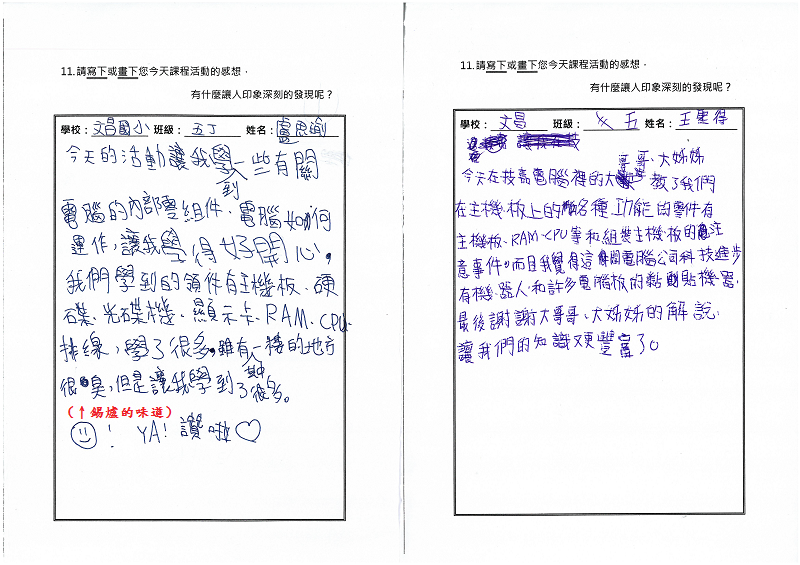 11.請寫下或畫下您今天課程活動的感想，
有什麼讓人印象深刻的發現呢？
學校：文昌國小 班級：五丁 姓名：盧思瑜
今天的活動讓我學到一些有關
電腦的內部零組件、電腦如何
運作，讓我學得好開心，
我們學到的鎖件有主機板、硬
碟、光碟機、顯示卡、RAM、CPU、
排線，學了很多。雖有一樓的地方
很臭，但是讓我學到了很多。
(↑錫爐的味道)
！ YA! 讚啦♡
11.請寫下或畫下您今天課程活動的感想，
有什麼讓人印象深刻的發現呢？
學校：文昌 班級：五 姓名：王聖得
今天在技高電腦裡的大哥哥、大姊姊教了我們
在主機板上的各種功能的零件有
主機板、RAM、CPU等和組裝主機板的注
意事件。而且我覺得這間電腦公司科技進步
有機器人和許多電腦板的黏貼機器，
最後謝謝大哥哥、大姊姊的解說，
讓我們的知識又更豐富了。